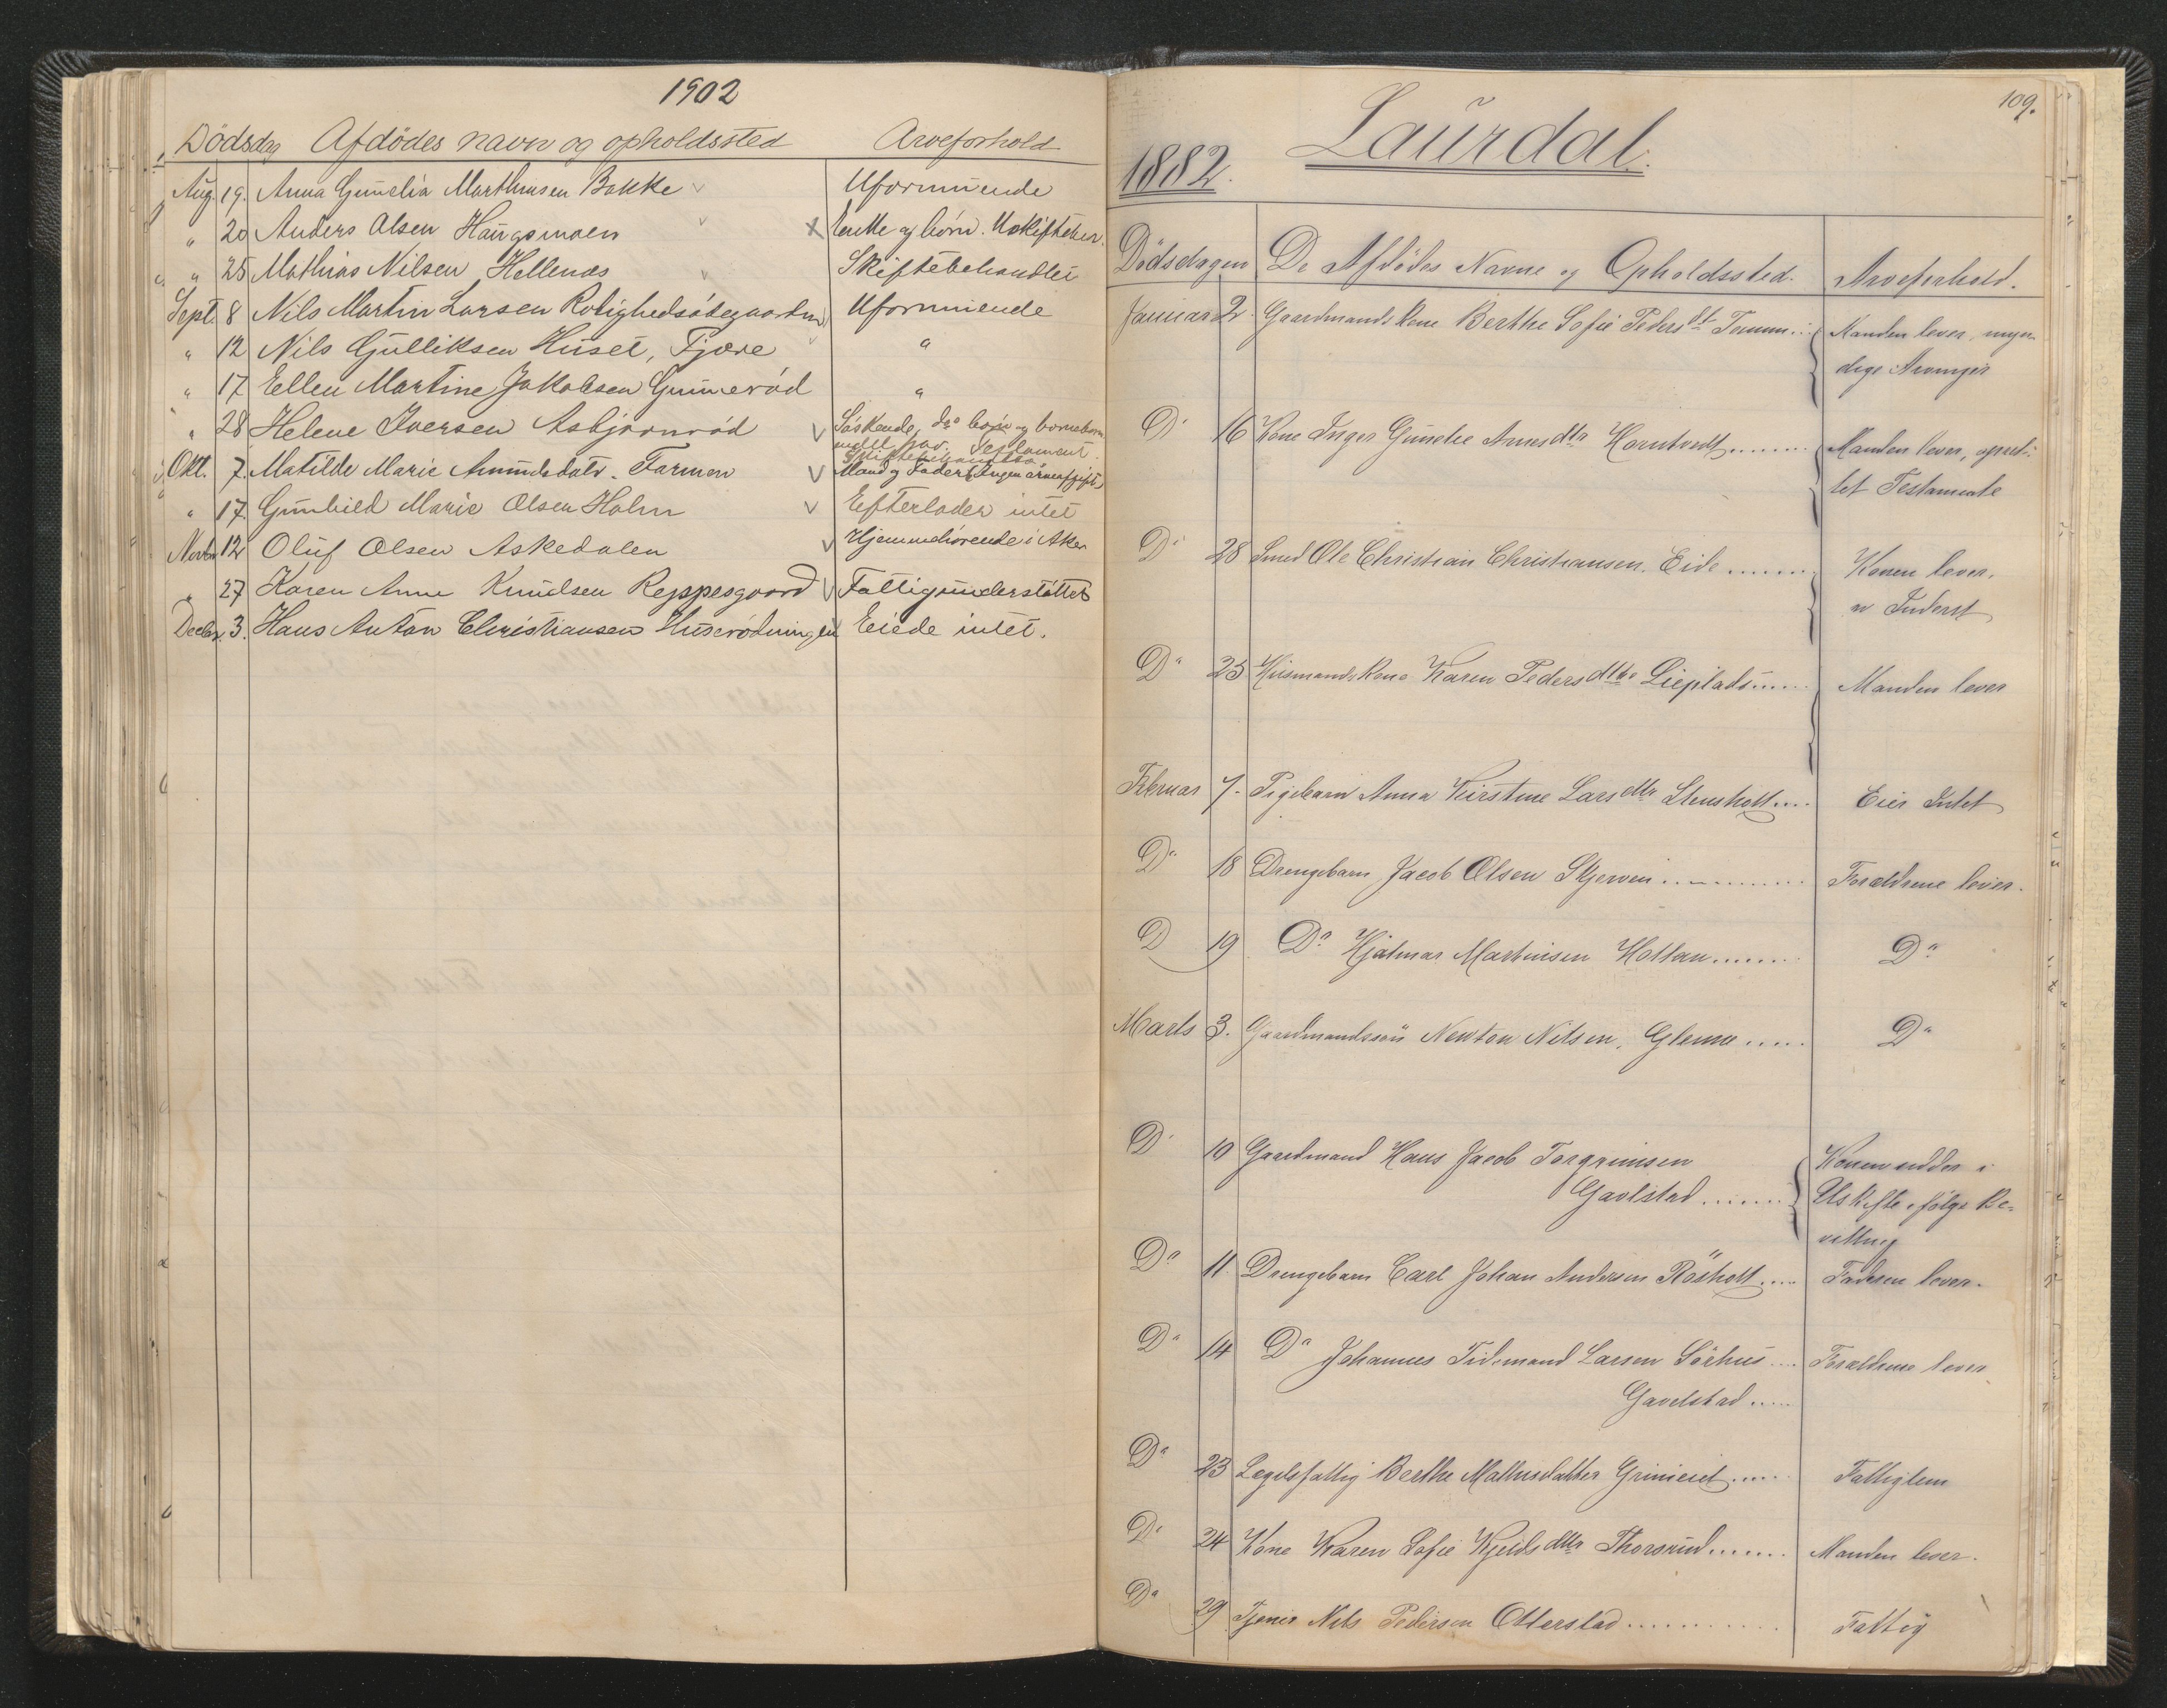 1902
Dödsdag Afdödes navn og opholdssted Arveforhold
Aug. 19. Anna Gunelia Marthinsen Bakke Uformuende
" 20 Anders Olsen Haugsmoen x Enke og börn. Uskiftebev.
" 25 Mathias Nilsen Hellenæs Skiftebehandlet
Sept. 8 Nils Martin Larsen Rolighedsödegaarden Uformuende
" 12 Nils Gulliksen Huset, Tjære "
" 17 Ellen Martine Jakobsen Gunneröd "
" 28 Helene Iversen Asbjörnröd Söskende, Do börn og börnebörn
Testament.
Skiftebehandles
Okt. 7. Matilde Marie Amundsdatr. Farmen Mand og Fader. Ingen arveafgift
" 17. Gunhild Marie Olsen Holm Efterlader intet
Novbr. 12 Oluf Olsen Askedalen Hjemmehörende i Aker
" 27 Karen Anne Knudsen Reppesgaard Fattigunderstöttet
Decbr. 3. Hans Anton Christiansen Huserödningen Eiede intet.
109.
Laurdal.
1882.
Dödsdagen De Afdödes Navne og Opholdssted. Arveforhold.
Januar 2. Gaardmandskone Berthe Sofie Pedersdt Tomm Manden lever, myn-
dige Arvinger
Do 16 Kone Inger Gunelie Arnesdtr Horntvedt Manden lever, opret-
tet Testamente
Do 28 Smed Ole Christian Christiansen. Eide Konen lever.
Inderst
Do 23 Husmandskone Karen Pedersdttr Lieplads Manden lever
Februar 7. Pigebarn Anna Kirstine Larsdtr Stensholt Eier Intet
Do 18 Drengebarn Jacob Olsen Skjerven Forældrene lever.
D 19 Do Hjalmar Martinsen Holtan Do
Marts 3. Gaardmandssön Newton Nilsen, Glenne Do
Do 10 Gaardmand Hans Jacob Torgrimsen Konen sidder i
Gavlstad Uskifte ifølge Be-
villing
Do 11. Drengebarn Carl Johan Andersen Rösholt Faderen lever.
Do 14 Do Johannes Tidemand Larsen Sörhus Forældrene lever
Gavelstad
Do 23 Lægdsfattig Berthe Mathisdatter Grimeset Fattiglem
Do 24 Kone Karen Sofie Kjeldsdttr Thorsrud Manden lever.
Do 29 Tjener Nils Pedersen Otterstad Fattig